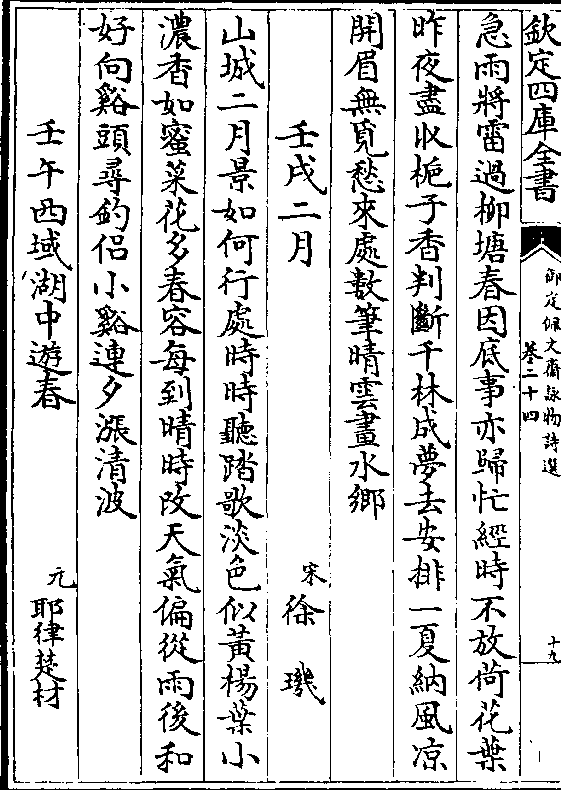 欽定四庫全書
御定佩文齋詠物詩選
卷二十四
十九
急雨將雷過柳塘春因底事亦歸忙經時不放荷花葉
昨夜盡收梔子香判斷千林成夢去安排一夏納風凉
開眉無覓愁來處數筆晴雲畫水鄉
壬戌二月
宋
徐璣
山城二月景如何行處時時聽踏歌淡色似黃楊葉小
濃香如蜜菜花多春容每到晴時改天氣偏從雨後和
好向谿頭尋釣侶小谿連夕漲清波
壬午西域湖中遊春
元
耶律楚材